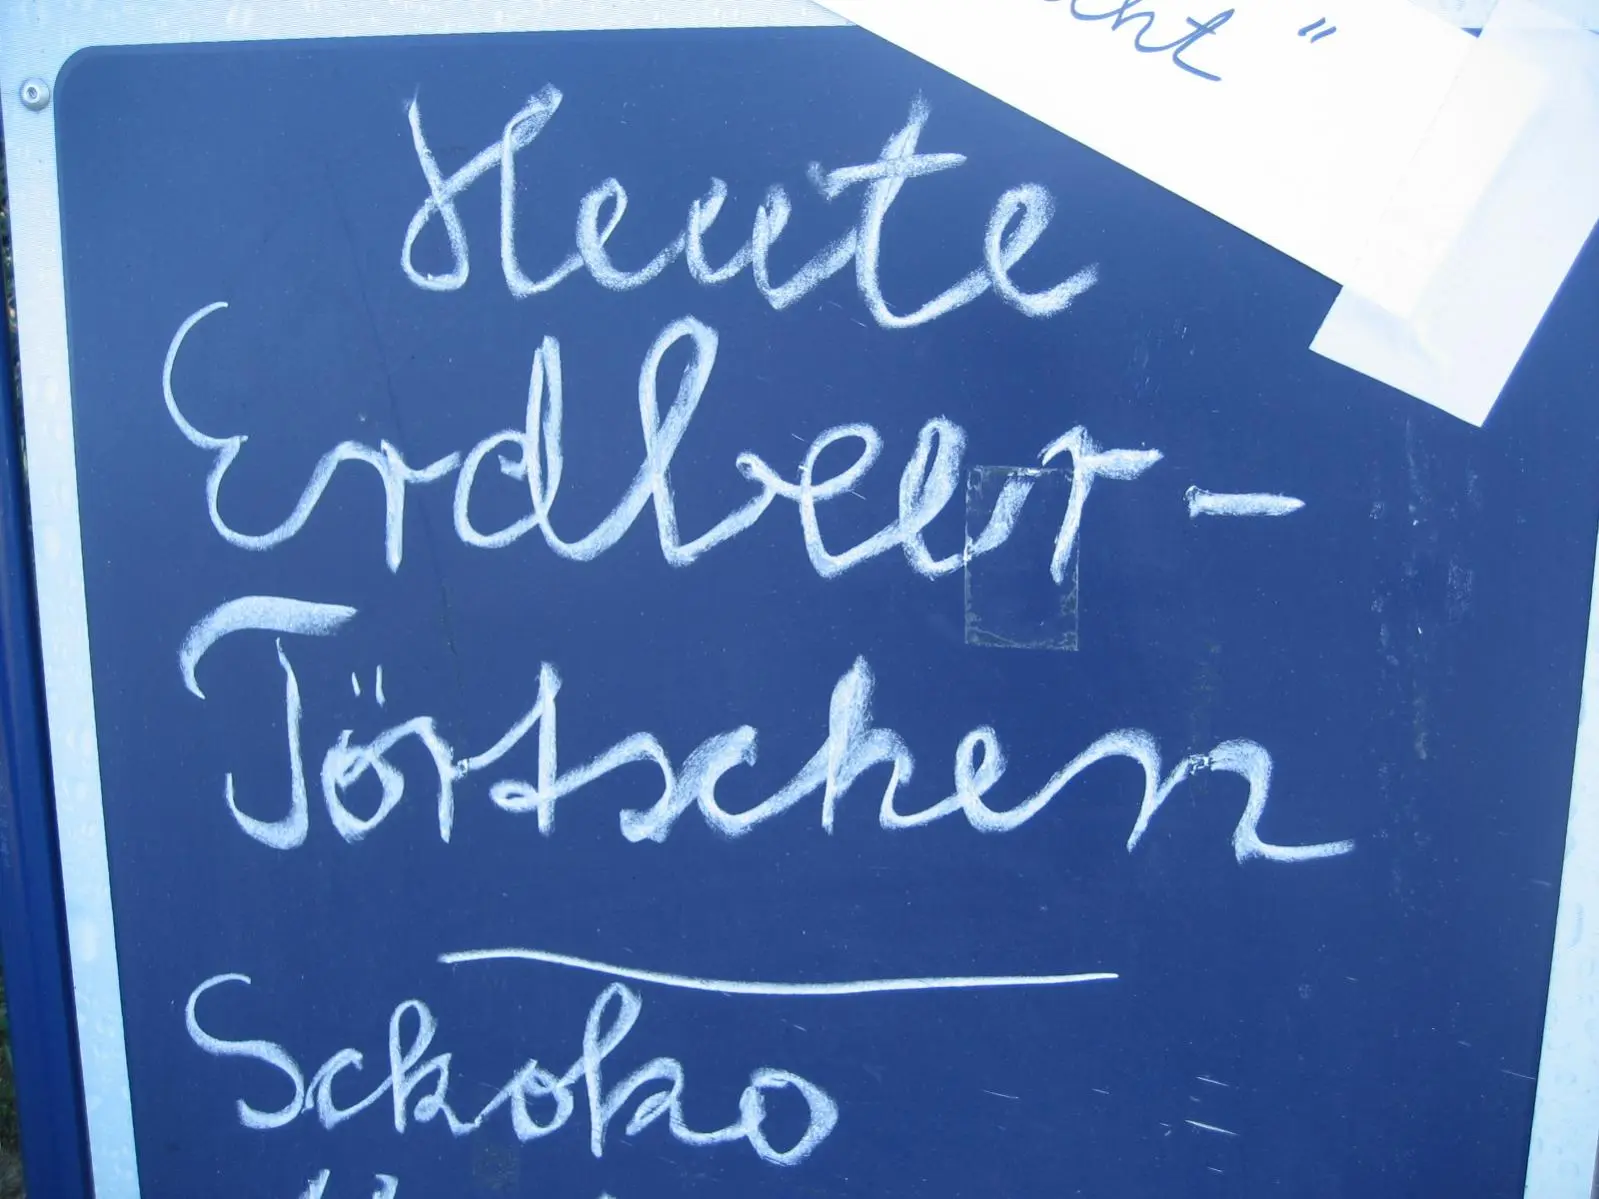 cht"
Heute
Erdbeer-
Törtschen
Schoko